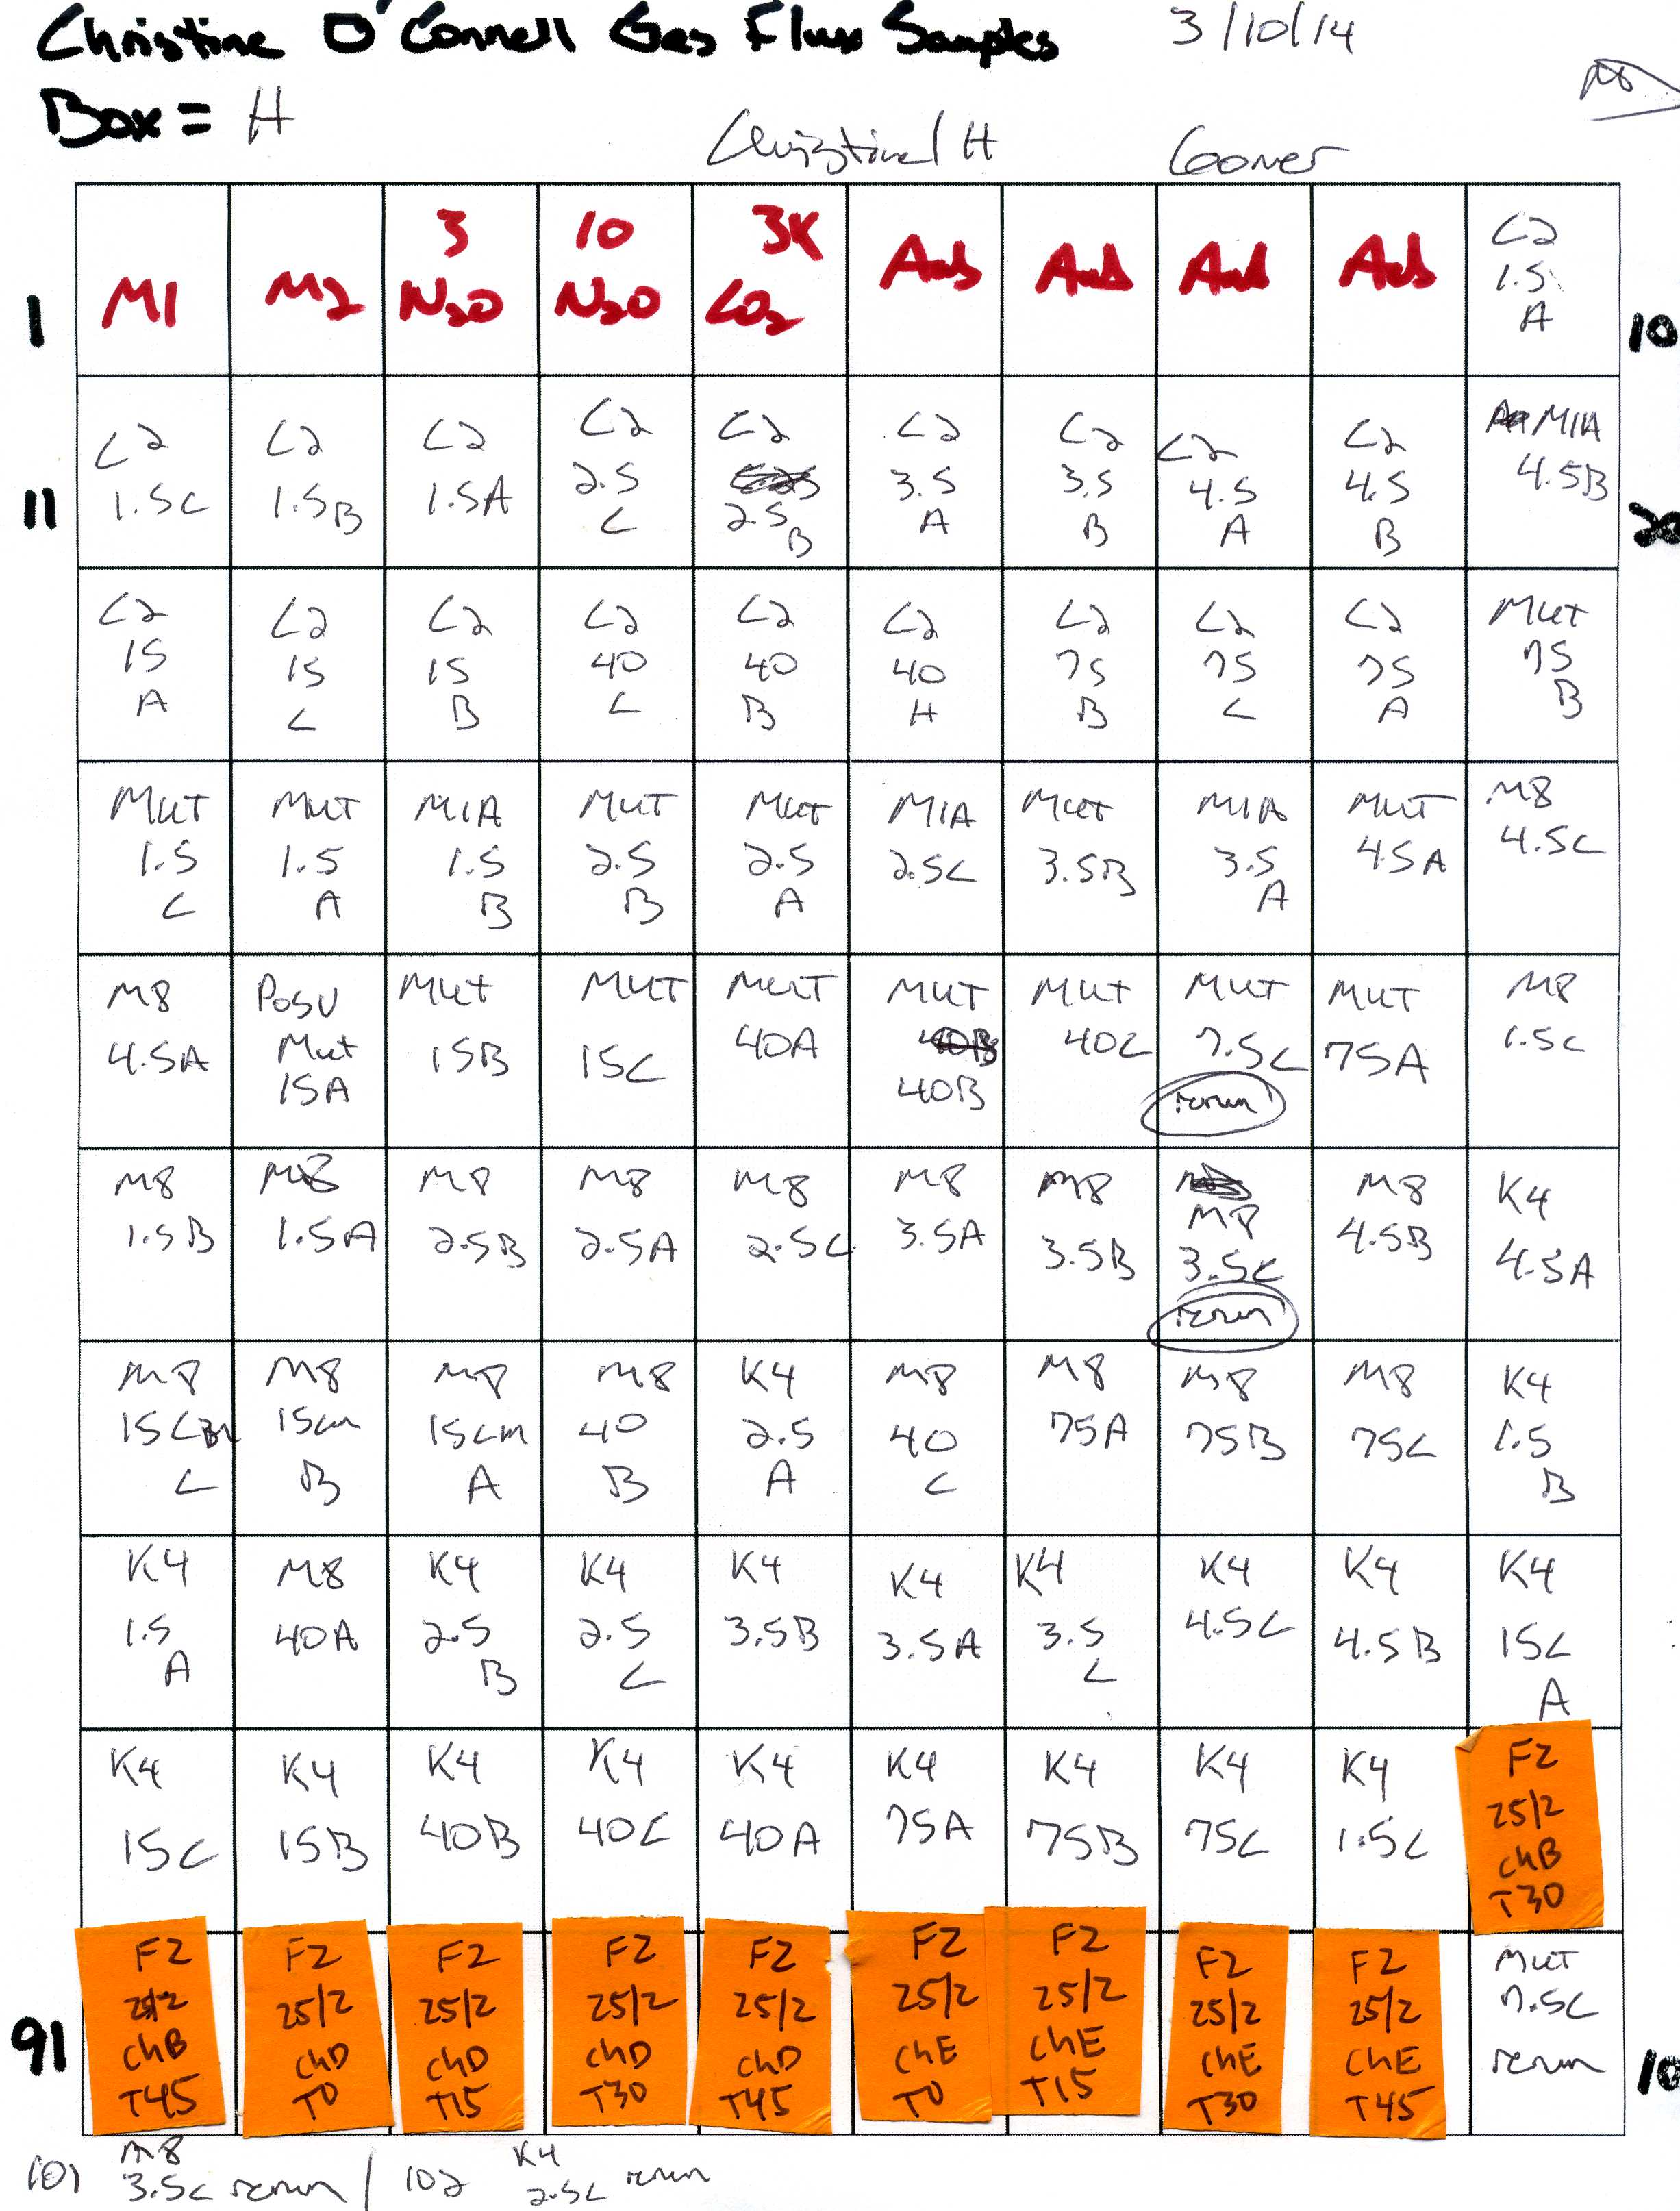 Christine O'Connell Gas Flux Samples 3/10/14
M8
Box = H
Christine/H Goner
1 M1 M2 3 N2O 10 N2O 3K CO2 Amb Amb Amb Amb C2 1.5 A 10
11 C2 1.5C C2 1.5B C2 1.5A C2 2.5 C C2 2.5 B C2 3.5 A C2 3.5 B C2 4.5 A C2 4.5 B M1A 4.5B 20
C2 15 A C2 15 C C2 15 B C2 40 C C2 40 B C2 40 H C2 75 B C2 75 C C2 75 A MUT 75 B
MUT 1.5 C MUT 1.5 A M1A 1.5 B MUT 2.5 B MUT 2.5 A M1A 2.5C MUT 3.5B M1A 3.5 A MUT 4.5A M8 4.5C
M8 4.5A Posu Mut 15A MUT 15B MUT 15C MUT 40A MUT 40B MUT 40C MUT 7.5C rerun MUT 75A M8 1.5C
M8 1.5B M8 1.5A M8 2.5B M8 2.5A M8 2.5C M8 3.5A M8 3.5B M8 3.5C rerun M8 4.5B K4 4.5A
M8 15cm C M8 15cm B M8 15cm A M8 40 B K4 2.5 A M8 40 C M8 75A M8 75B M8 75C K4 1.5 B
K4 1.5 A M8 40A K4 2.5 B K4 2.5 C K4 3.5B K4 3.5A K4 3.5 C K4 4.5C K4 4.5B K4 15C A
K4 15C K4 15B K4 40B K4 40C K4 40A K4 75A K4 75B K4 75C K4 1.5C F2 25/2 ChB T30
91 F2 25/2 ChB T45 F2 25/2 ChD T0 F2 25/2 ChD T15 F2 25/2 ChD T30 F2 25/2 ChD T45 F2 25/2 ChE T0 F2 25/2 ChE T15 F2 25/2 ChE T30 F2 25/2 ChE T45 MUT 7.5C rerun 10
101 M8 3.5C rerun / 102 K4 2.5C rerun